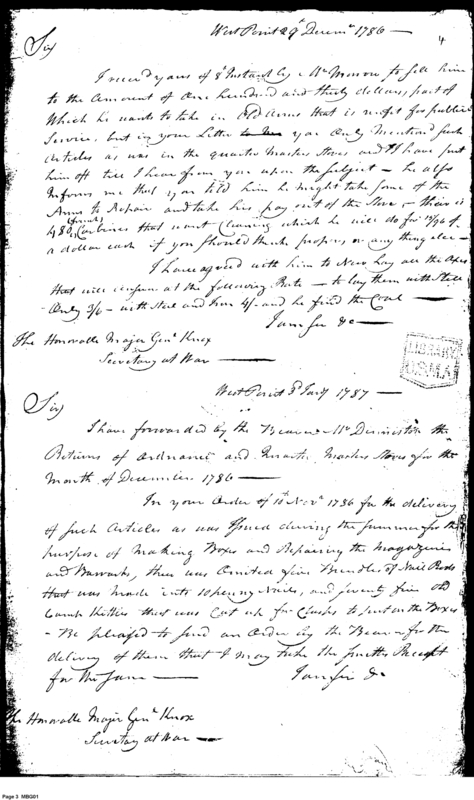 West Point 29th Decemr 1786 —
4
Sir
I received yours of 8th Instant by Mr Morrow to sell him
to the Amount of One hundred and thirty dollars, part of
Which he wants to take in Old Arms that is unfit for public
Service, but in your Letter you Only Mentioned such
Articles as was in the quarter Masters Stores and I have put
him off till I hear from you upon the Subject — he also
Informs me that you told him he might take some of the
Arms to Repair and take his pay out of the Store — there is
480 Carbines that want Cleaning which he will do for of
a dollar each if you should think proper, or any thing else —
I have agreed with him to New Lay all the Axes
that will answer at the following Rate — to lay them with Steel
Only 3/6 — with Steel and Iron 4/- and he find the Coal —
I am Sir &c —
The Honorable Major Genl Knox
Secretary at War —
LIBRARY
U.S.M.A.
West Point 3d Jany 1787 —
Sir
I have forwarded by the Bearer Mr Denniston the
Returns of Ordnance and Quarter Masters Stores for the
Month of December 1786 —
In your Order of 10th Novr 1786 for the delivery
of Such Articles as was Issued during the Summer for the
purpose of Making Boxes and Repairing the Magazines
and Barracks, there was Omitted five Bundles of Nail Rods
that was Made into 10penny Nails, and seventy five Old
Camp Kettles that was Cut up for to put on the Boxes
- Be pleased to send an Order by the Bearer for the
delivery of them that I may take the Smiths Receipt
for the Same — I am Sir &c
The Honorable Major Genl Knox
Secretary at War —
Page 3 MBG01